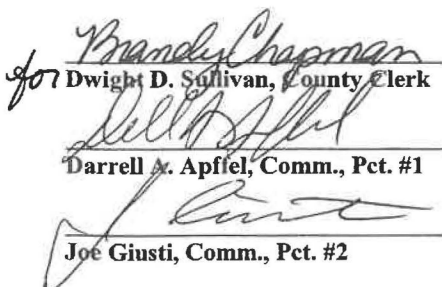 Brandy Chapman
for Dwight D. Sullivan, County Clerk
Darrell A. Apffel, Comm., Pct. #1
Joe Giusti, Comm., Pct. #2